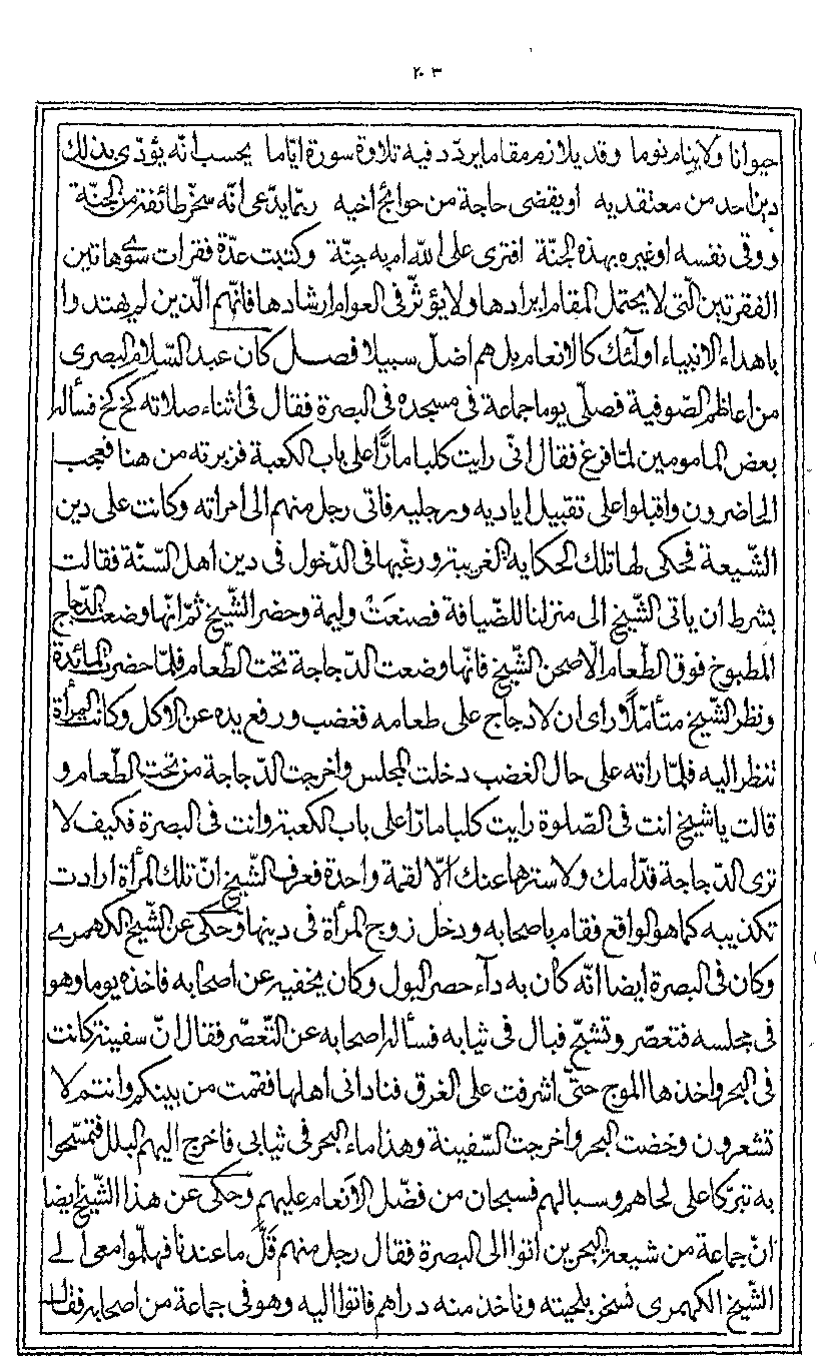 ٢٠٣
حيوانا ولاينام نوما وقد يلازم مقاما يردد فيه تلاوة سورة ايّاما يحسب انّه يؤدّى بذلك
دين احد من معتقديه اويقضى حاجة من حوائج أخيه ربّما يدّعى انّه سخّر طائفة من الجنّة
ووقى نفسه اوغيره بهذه الجنّة افترى على الله ام به جنّة وكتبت عدّة فقرات سوى هاتين
الفقرتين الّتى لا يحتمل المقام ايرادها ولا يؤثّر فى العوام ارشادها فانّهم الّذين لم يهتدوا
باهداء الانبياء اولئك كالانعام بل هم اضلّ سبيلا فصل كان عبد السّلام البصرى
من اعاظم الصّوفية فصلّى يوما جماعة فى مسجده فى البصرة فقال فى اثناء صلاته كخ كخ فسأله
بعض المامومين لمّا فرغ فقال انّى رايت كلبا مارًّا على باب الكعبة فزبرته من هنا فعجب
الحاضرون واقبلوا على تقبيل اياديه ورجليه فاتى رجل منهم الى امراته وكانت على دين
الشّيعة فحكى لها تلك الحكاية الغريبة ورغّبها فى الدّخول فى دين اهل السّنّة فقالت
بشرط ان ياتى الشّيخ الى منزلنا للضّيافة فصنعَتْ وليمة وحضر الشّيخ ثمّ انّها وضعت الدّجاج
المطبوخ فوق الطّعام الّا صحن الشّيخ فانّها وضعت الدّجاجة تحت الطّعام فلمّا حضرت المائدة
ونظر الشّيخ متأمّلًا وراى ان لا دجاج على طعامه فغضب ورفع يده عن الاكل وكانت المرأة
تنظر اليه فلمّا راته على حال الغضب دخلت المجلس واخرجت الدّجاجة من تحت الطّعام و
قالت يا شيخ انت فى الصّلوة رايت كلبا مارّا على باب الكعبة وانت فى البصرة فكيف لا
ترى الدّجاجة قدّامك ولا سترها عنك الّا لقمة واحدة فعرف الشّيخ انّ تلك المرأة ارادت
تكذيبه كما هو الواقع فقام باصحابه ودخل زوج المرأة فى دينها وحكى عن الشّيخ الكهمرى
وكان فى البصرة ايضا انّه كان به دآء حصر البول وكان يخفيه عن اصحابه فاخذه يوما وهو
فى مجلسه فتعصّر وتشبّح فبال فى ثيابه فسأله اصحابه عن التّعصّر فقال انّ سفينة كانت
فى البحر واخذها الموج حتّى اشرفت على الغرق فنادانى اهلها فقمت من بينكم وانتم لا
تشعرون وخضت البحر واخرجت السّفينة وهذا ماء البحر فى ثيابى فاخرج اليهم البلل فتمسّحوا
به تبرّكا على لحاهم وسبالهم فسبحان من فضّل الأنعام عليهم وحكى عن هذا الشّيخ ايضا
انّ جماعة من شيعة البحرين اتوا الى البصرة فقال رجل منهم قَلَّ ما عندنا فهلمّوا معى الى
الشّيخ الكهمرى نسخر بلحيته وناخذ منه دراهم فاتوا اليه وهو فى جماعة من اصحابه فقال